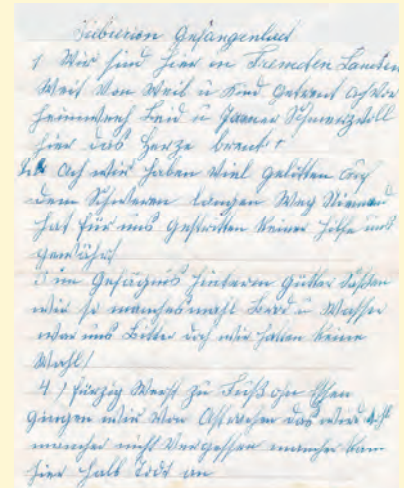 Siberien Gefangenlied
1 Wir sind hier in Fremden Landen
Weit Von Weib u Kind getrent Ach Vor
heimweh Leid u Jamer Schmerzvoll
hier das Herze brent!
2. Ach wir haben Viel gelitten Auf
dem Schweren langen Weg Niemand
hat für uns gestritten Keiner Hilfe uns
gewährt
3 im Gefägnis hinterm Gitter Saßen
wir so manchesmahl Brod u Wasser
war uns Bitter doch wir hatten Keine
Wahl!
4) fürzig Werst zu Fuß ohn Essen
gingen wir Von das wird
mancher nicht Vergessen mancher kam
hier halb Todt an